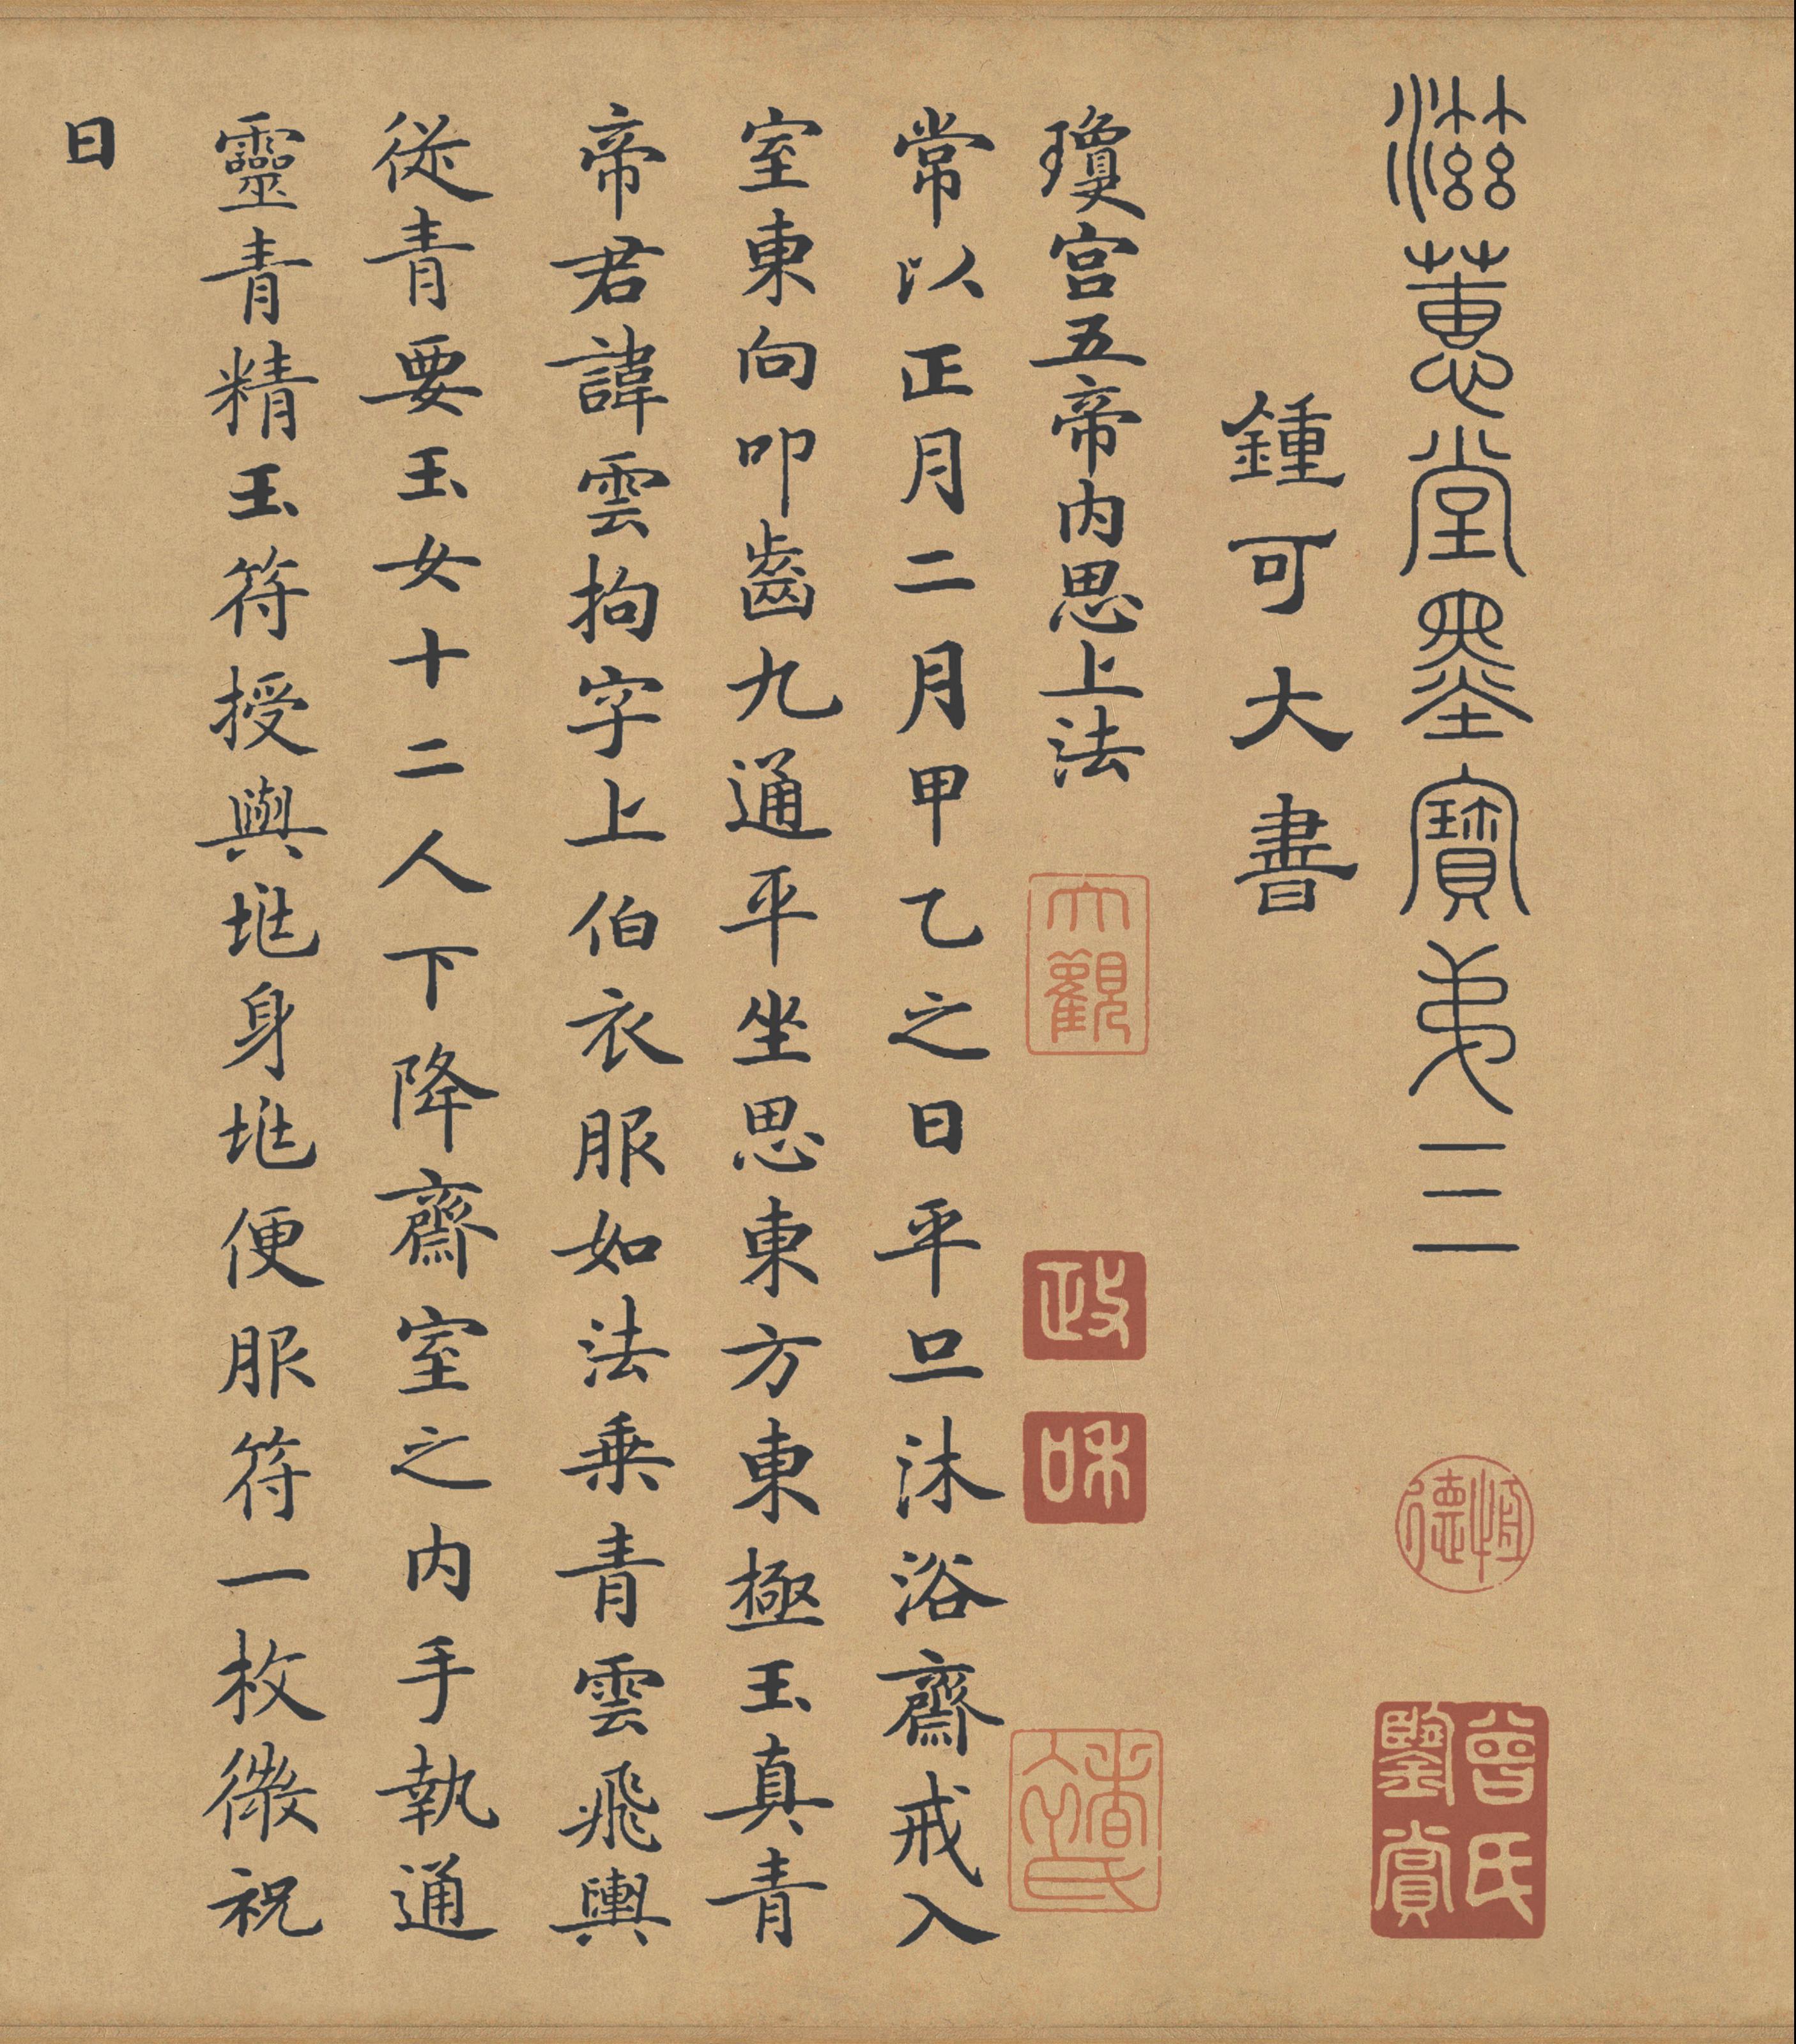 滋蕙堂墨寶弟三
恆德
曾氏鑒賞
鍾可大書
瓊宮五帝內思上法
大觀
政
和
常以正月二月甲乙之日平旦沐浴齋戒入
室東向叩齒九通平坐思東方東極玉真青
帝君諱雲拘字上伯衣服如法乘青雲飛輿
從青要玉女十二人下降齋室之內手執通
靈青精玉符授與兆身兆便服符一枚微祝
曰